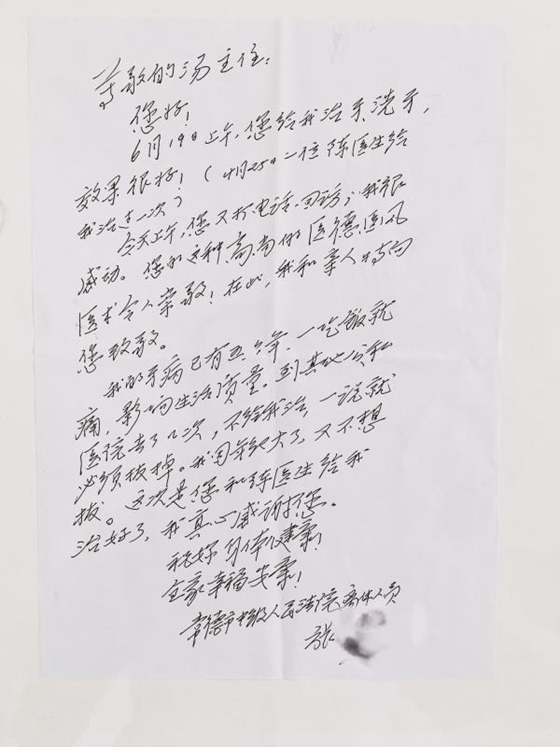 尊敬的汤主任：
您好！
6月19日上午，您给我治牙洗牙，
效果很好！（4月25日一位陈医生给
我治过一次）
今天上午，您又打电话回访，我很
感动。您的这种高尚的医德医风
医术令人崇敬！在此，我和家人特向
您致敬。
我的牙病已有五、六年，一吃饭就
痛，影响生活质量。到其他公私
医院去了几次，不给我治，一说就
必须拔掉。我因年纪大了，又不想
拔。这次是您和陈医生给我
治好了，我真心感谢您。
祝好身体健康！
全家幸福安康！
常德市中级人民法院离休人员
张